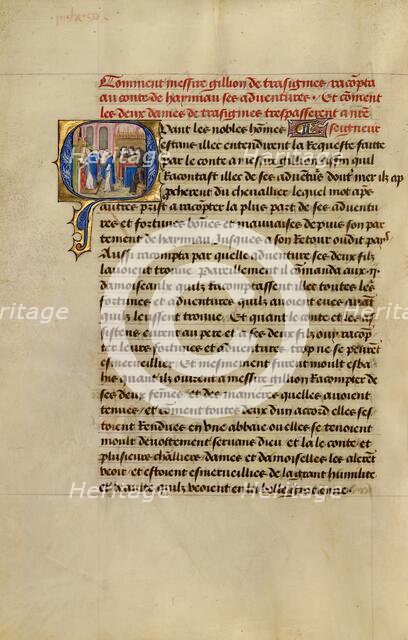 Comment messire gillion de trasignies racompta
au conte de haynnau ses adventures. Et comment
les deux dames de trasignies trespasserent a nre
Quant les nobles hommes seigneur
estans illec entendirent la requeste faitte
par le conte a messire gillion affin quil
racontast illec de ses adventures dont mer il
du chevallier lequel mot apres
autres prist a racompter la plus part de ses adventu
res et fortunes bonnes et mauvaises depuis son par
tement de haynnau jusques a son retour oudit pays
Aussi racompta par quelle adventure ses deux filz
lavoient trouve. Pareillement commanda aux ii
damoiseaux quilz racomptassent illec toutes les
fortunes et adventures quilz avoient eues avant
quilz leussent trouve. Et quant le conte et les as
sistens eurent au pere et a ses deux filz ouy racomp
ter leurs fortunes et adventures trop ne se peurent
esmerveillier. Et mesmement furent moult esba
his quant ilz ouirent a messire gillion racompter de
ses deux femmes et des manieres quelles avoient
tenues et comment toutes deux dun accord elles ses
toient rendues en une abbaie ou elles se tenoient
moult devottement servans dieu et la le conte et
plusieurs challiers dames et damoiselles les alerent
veoir et estoient esmerveillies de la grant humilite
et beaulte quilz veoient en la belle gracienne.
Heritage
Heritage
Heritage
Heritage
Heritage
Heritage